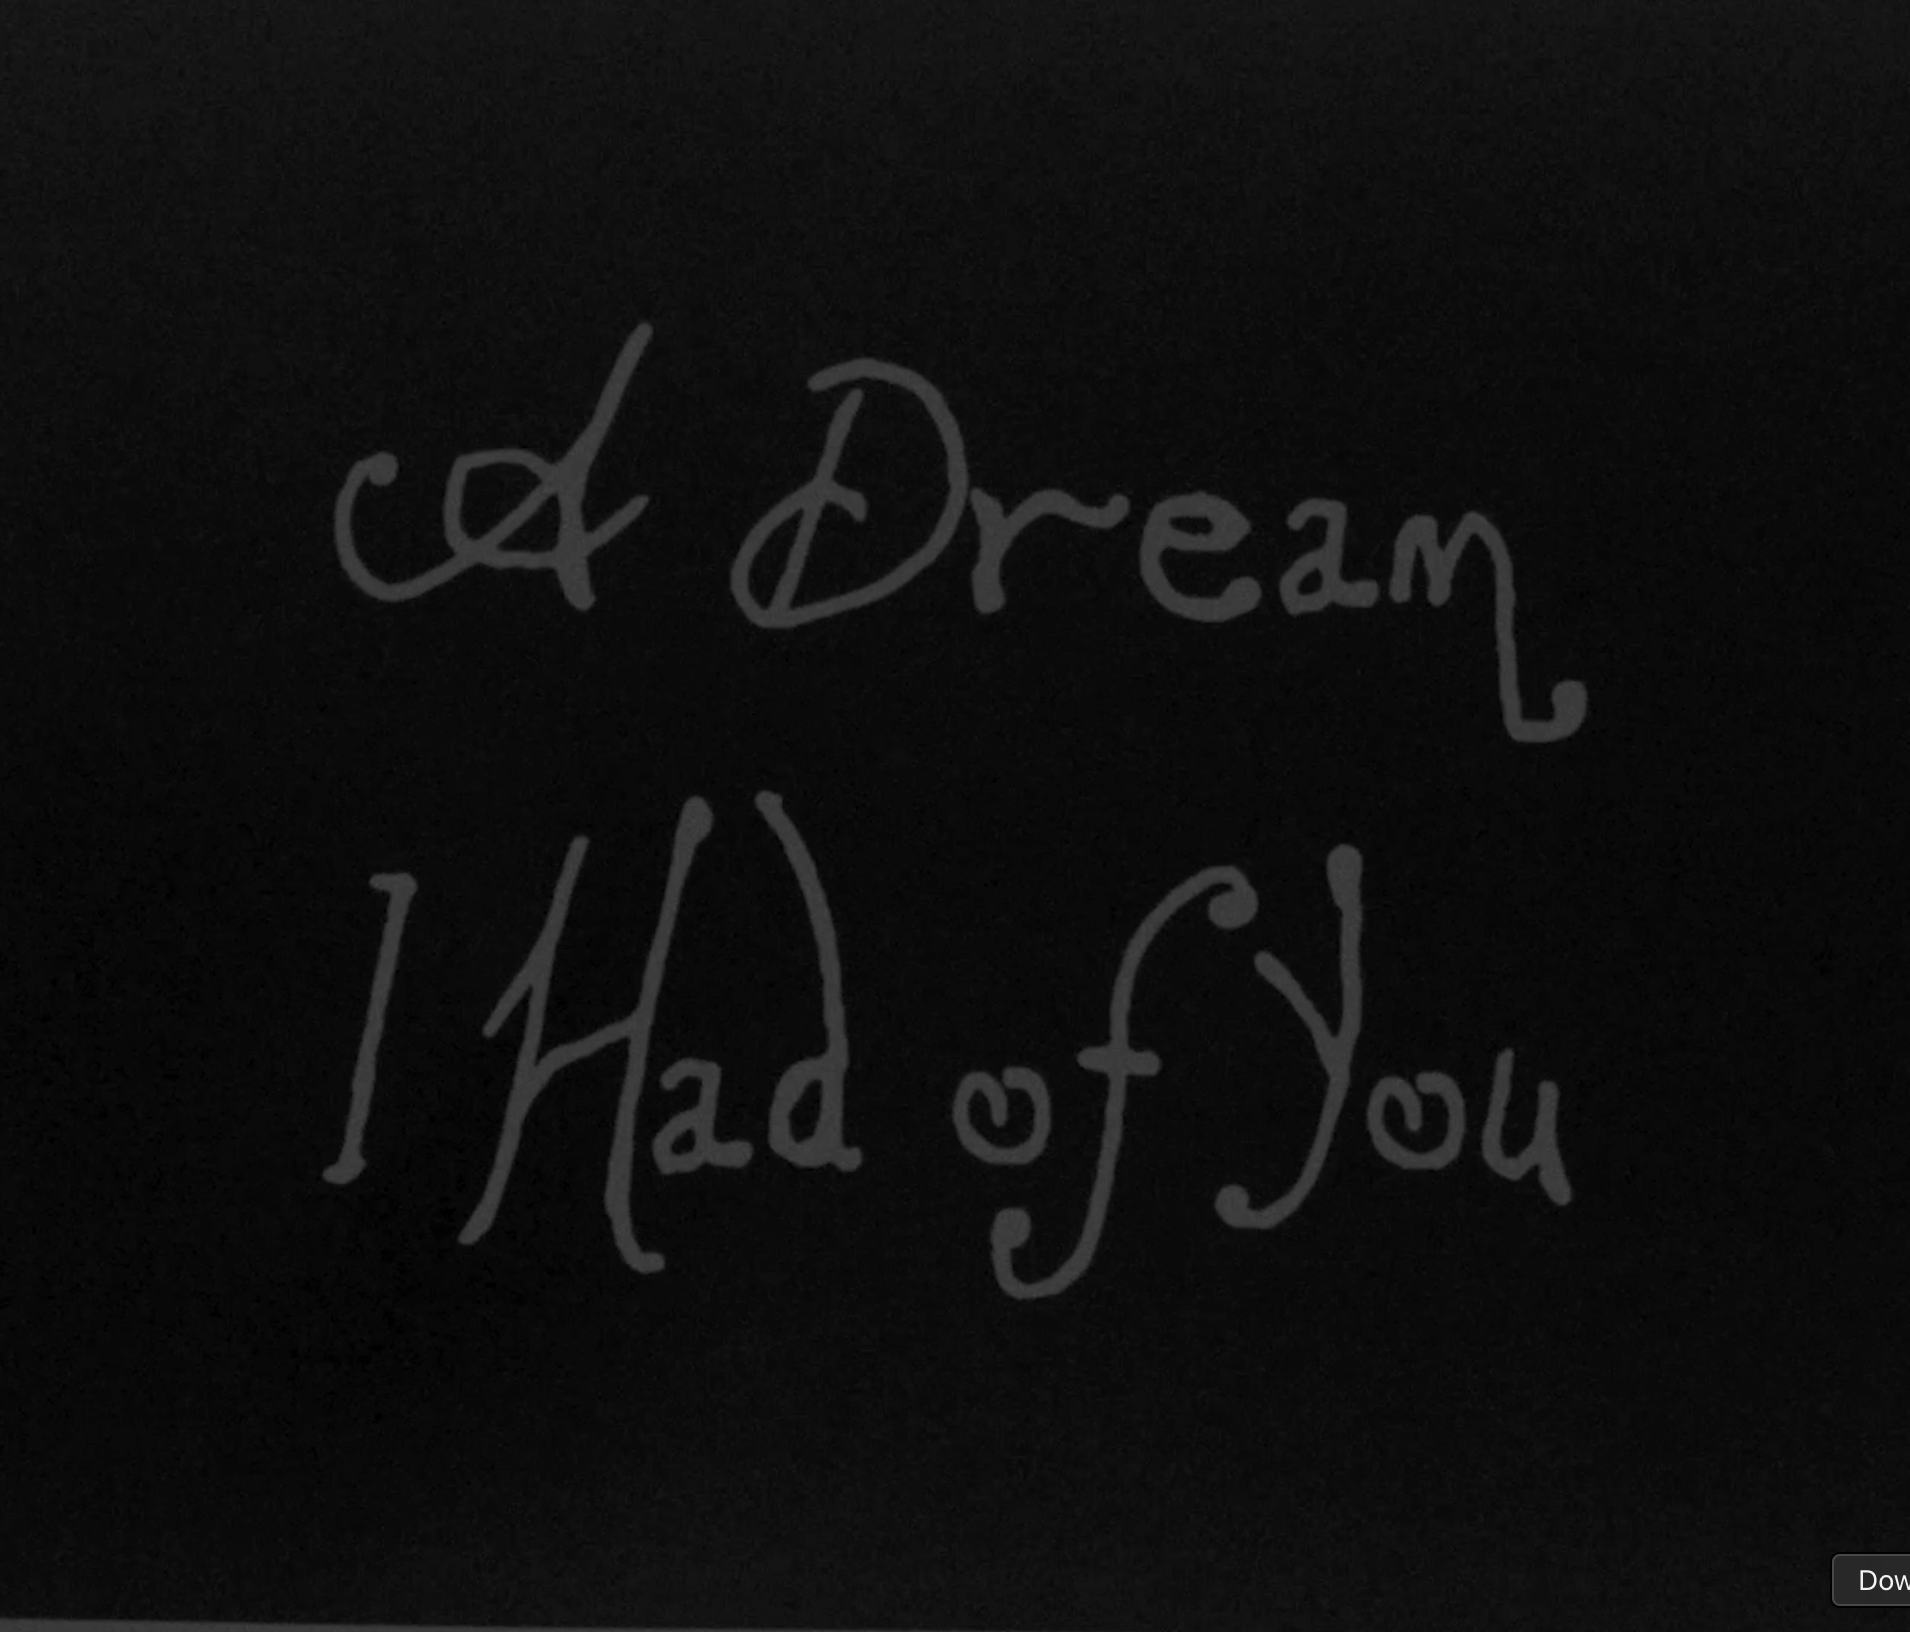 A Dream
I Had of You
Dow